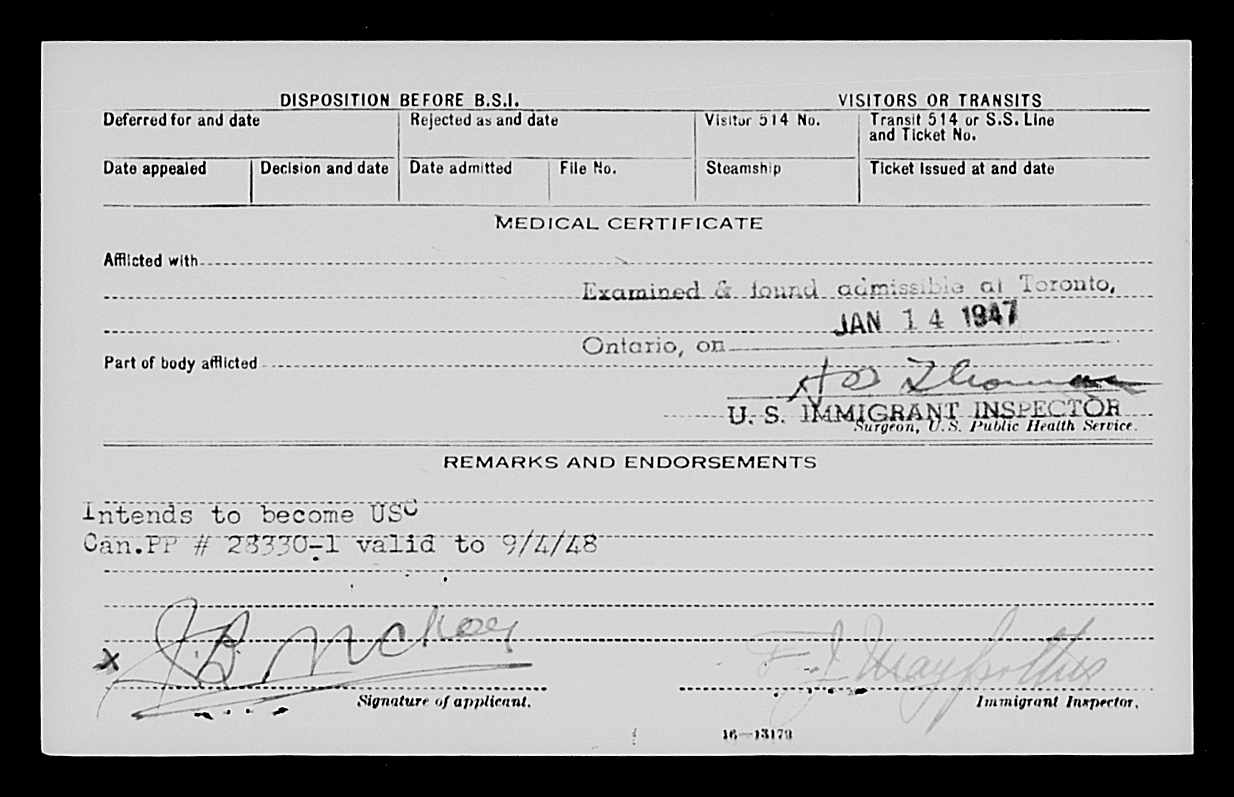 DISPOSITION BEFORE B.S.I.
VISITORS OR TRANSITS
Deferred for and date
Rejected as and date
Visitor 514 No.
Transit 514 or S.S. Line
and Ticket No.
Date appealed
Decision and date
Date admitted
File No.
Steamship
Ticket issued at and date
MEDICAL CERTIFICATE
Afflicted with
Examined & found admissible at Toronto,
JAN 14 1947
Ontario, on
Part of body afflicted
U. S. IMMIGRANT INSPECTOR
Surgeon, U.S. Public Health Service.
REMARKS AND ENDORSEMENTS
Intends to become USC
Can.PP # 28330-1 valid to 9/4/48
x J.B. McKoy
F J
Signature of applicant.
Immigrant Inspector.
16—13179